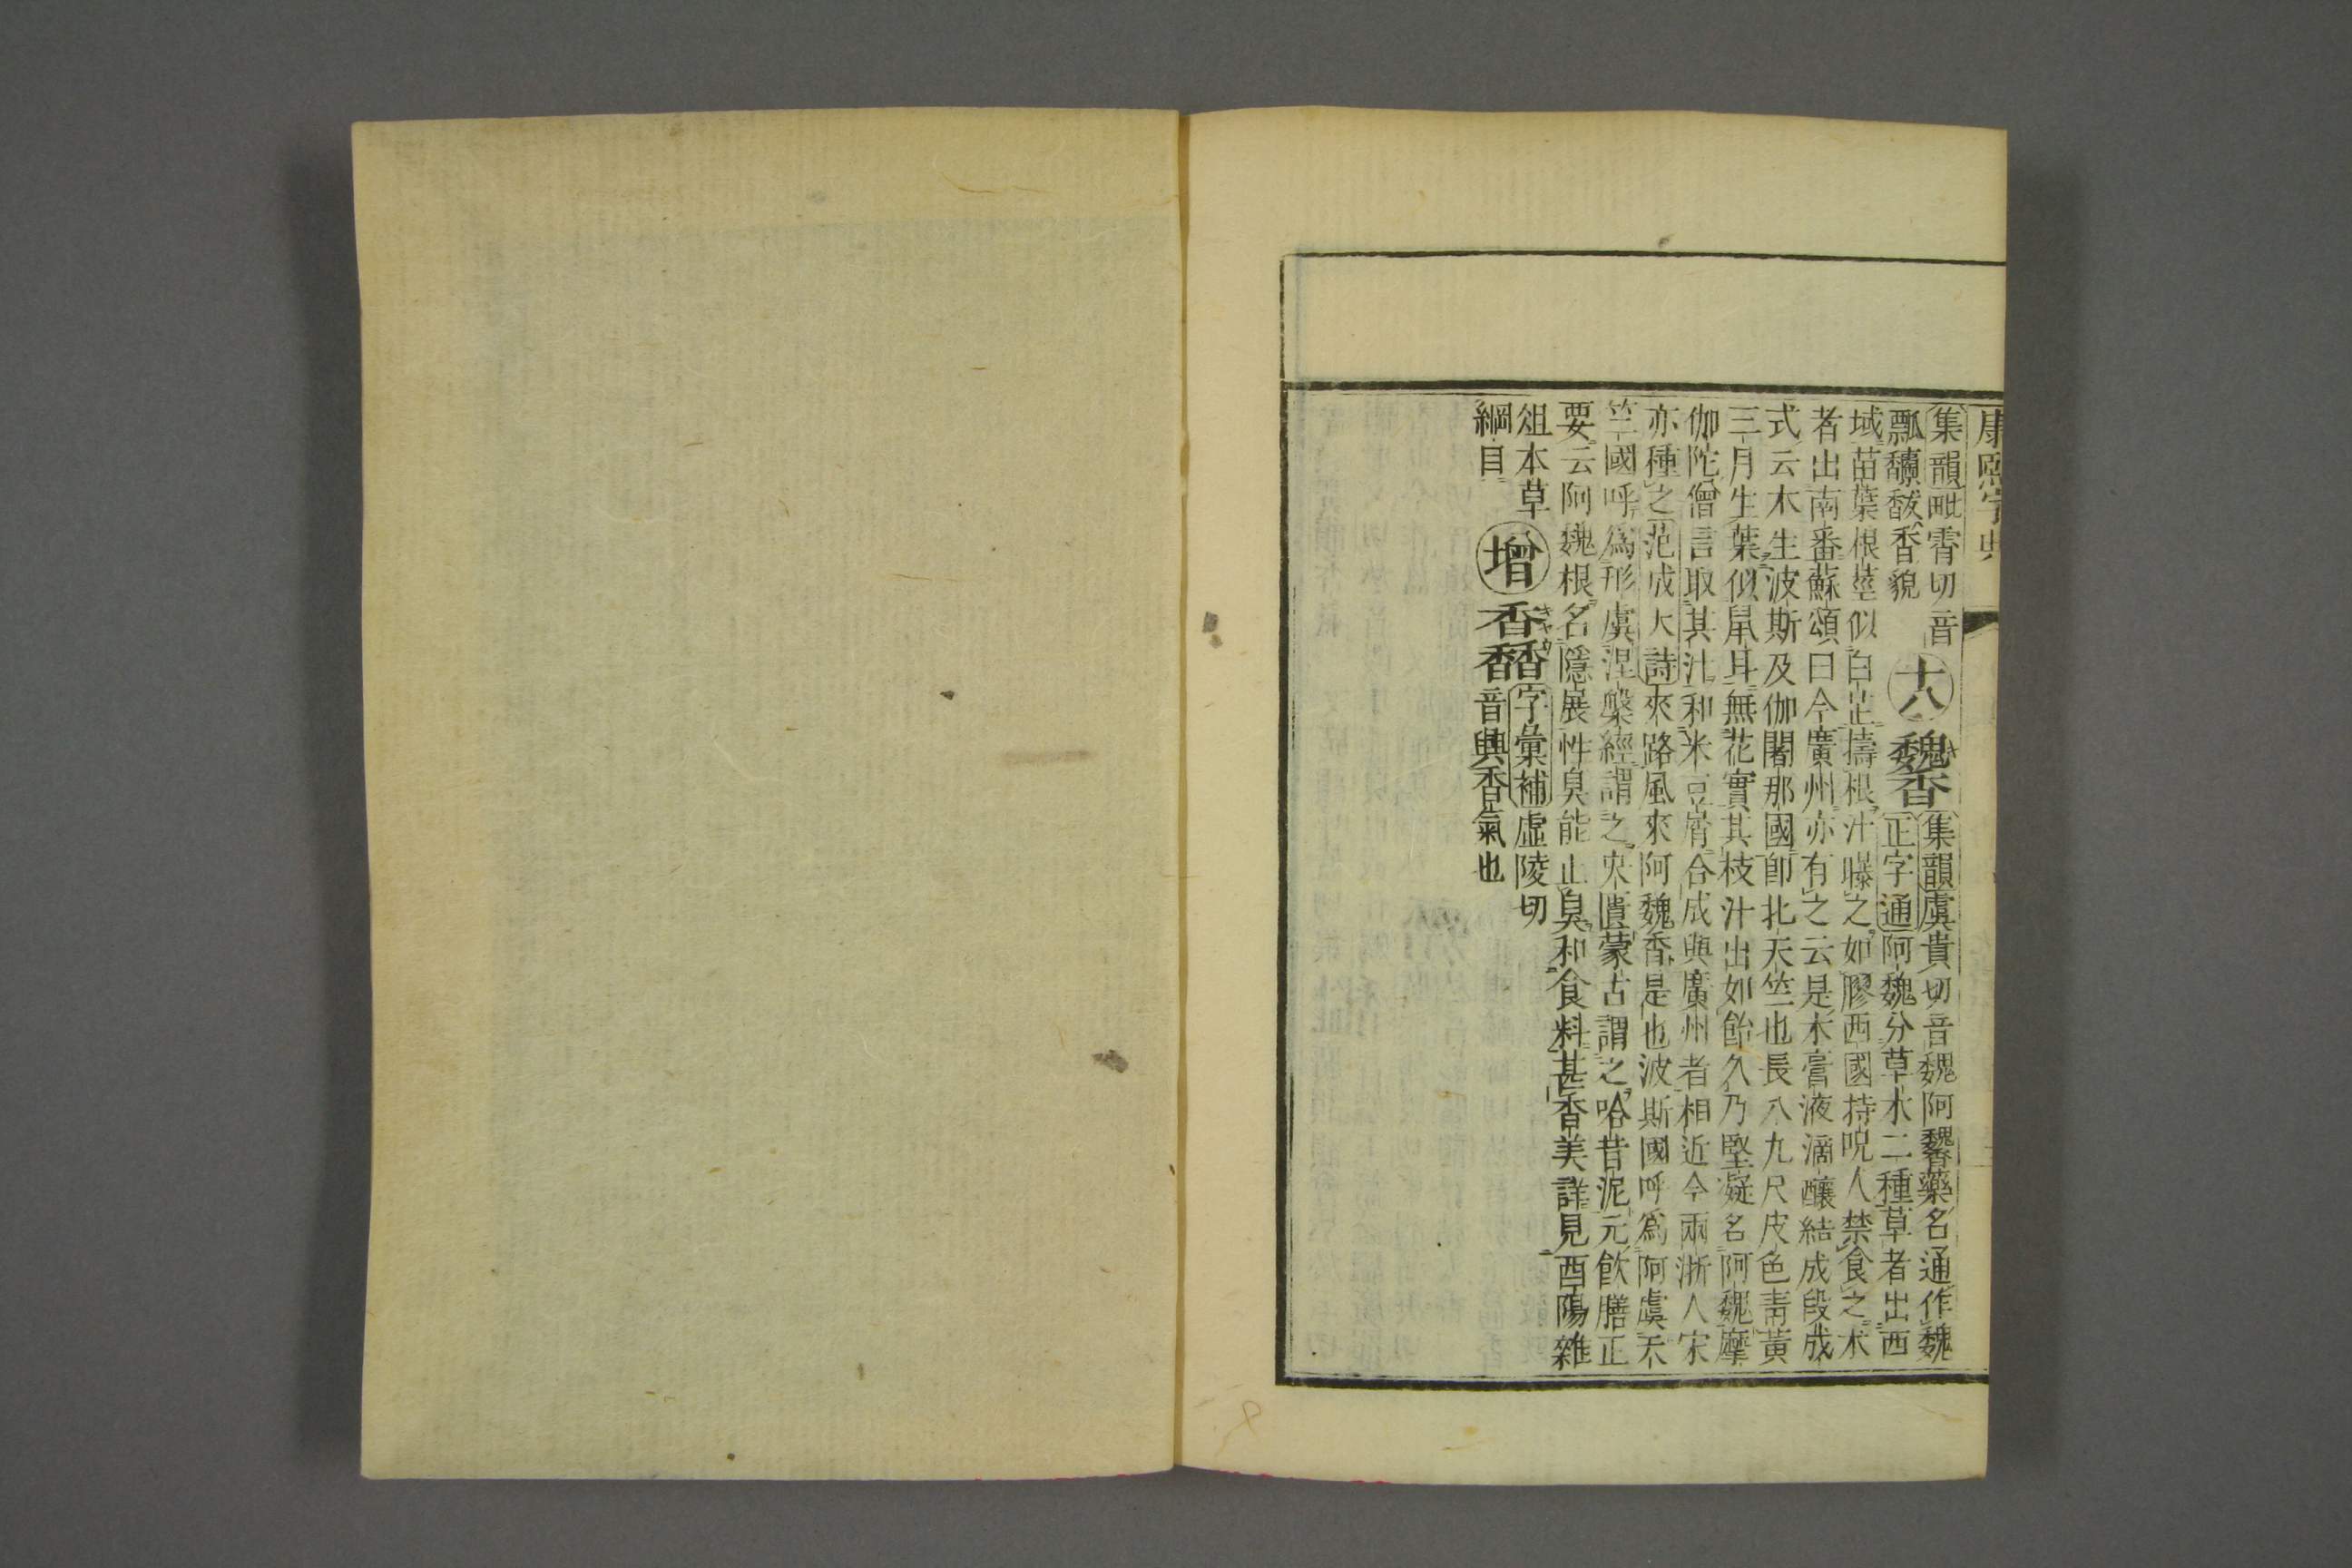 康熙字典
集韻毗霄切音
瓢䭱馛香貌
十八
𩡋
集韻虞貴切音魏阿𩡋藥名通作魏
正字通阿魏分草木二種草者出西
域苗葉根莖似白芷擣根汁曝之如膠西國持呪人禁食之木
者出南番蘇頌曰今廣州亦有之云是木膏液滴釀結成段成
式云木生波斯及伽闍那國卽北天竺也長八九尺皮色靑黃
三月生葉似鼠耳無花實其枝汁出如飴久乃堅凝名阿魏摩
伽陀僧言取其汁和米豆屑合成與廣州者相近今兩浙人家
亦種之范成大詩來路風來阿魏香是也波斯國呼爲阿虞天
竺國呼爲形虞涅槃經謂之央匱蒙古謂之哈昔泥元飮膳正
要云阿魏根名隱展性臭能止臭和食料甚香美詳見酉陽雜
俎本草
綱目
增
字彙補虛陵切
音興香氣也